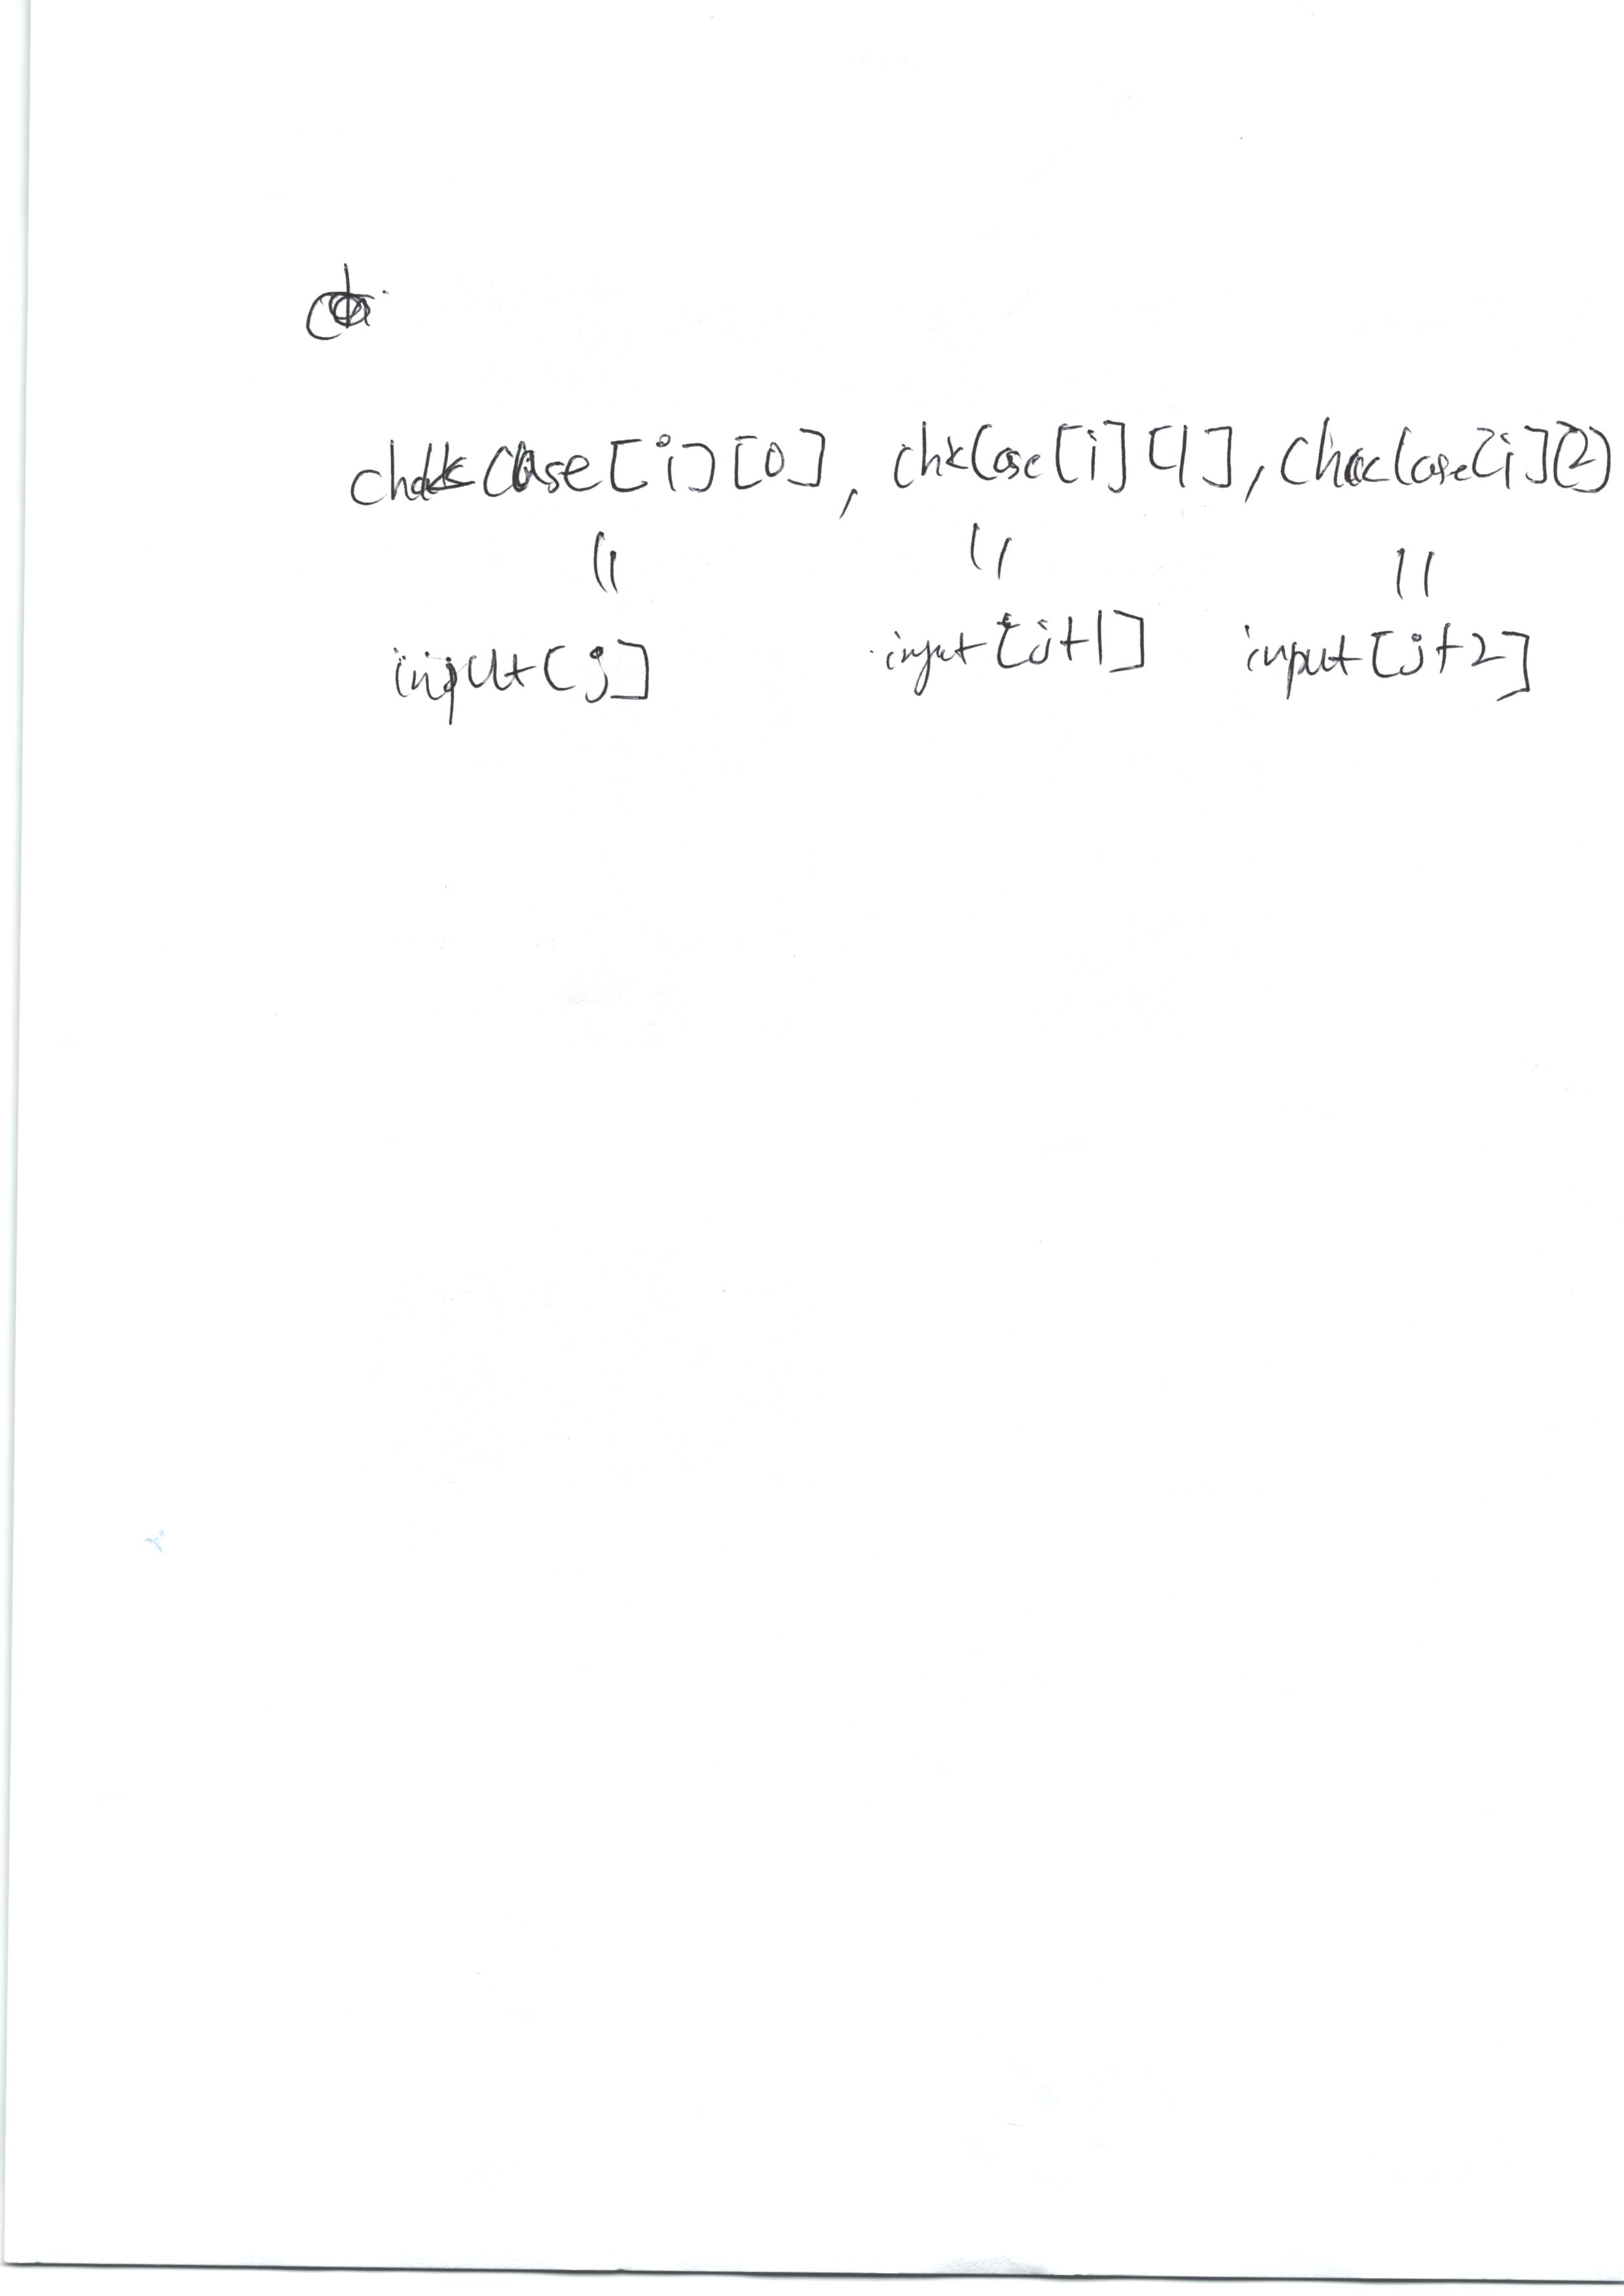 chkCase[i][0], chkCase[i][1], chkCase[i][2]
|| || ||
input[j] input[j+1] input[j+2]